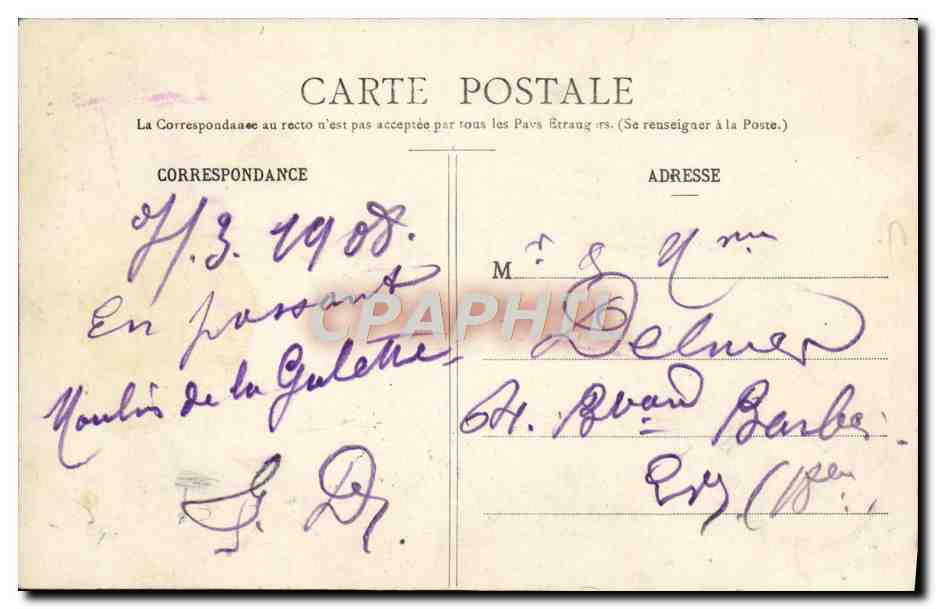 CARTE POSTALE
La Correspondance au recto n'est pas acceptée par tous les Pays Étrangers. (Se renseigner à la Poste.)
CORRESPONDANCE
7/.3.1908.
En passant
Moulin de la Galette
G. D.
ADRESSE
Mr & Mme
Delmer
64. Bvard Barbès.
CPAPHIL